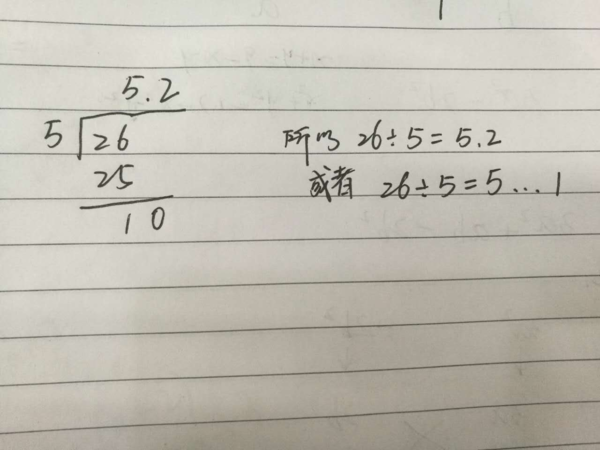 5.2
5 26
25
10
所以 26÷5=5.2
或者 26÷5=5...1